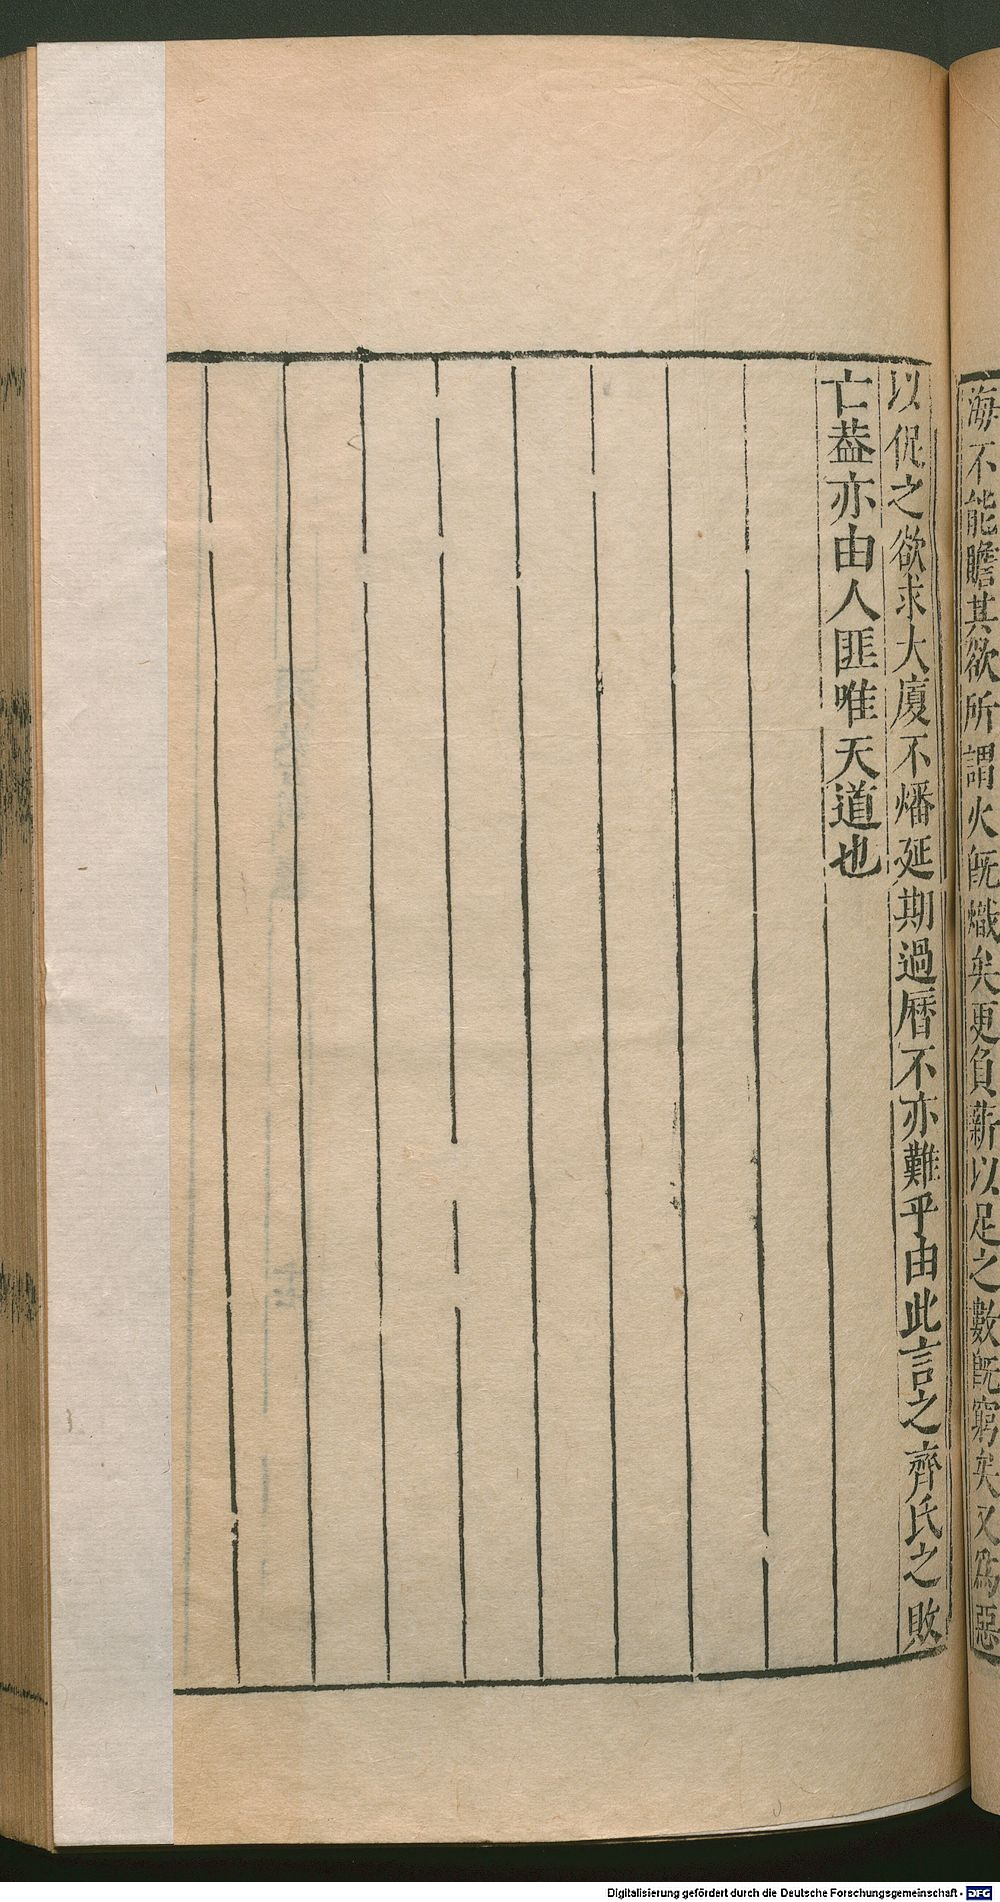 海不能贍其欲所謂火旣熾矣更負薪以足之數旣窮矣又爲惡
以促之欲求大廈不燔延期過曆不亦難乎由此言之齊氏之敗
亡葢亦由人匪唯天道也
Digitalisierung gefördert durch die Deutsche Forschungsgemeinschaft - DFG